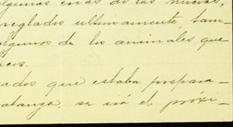 algunas cosas de las nuevas,
arreglados ultimamente, tam-
algunos de los animales que
ados que estaba prepara-
atanga, se irá el próxi-